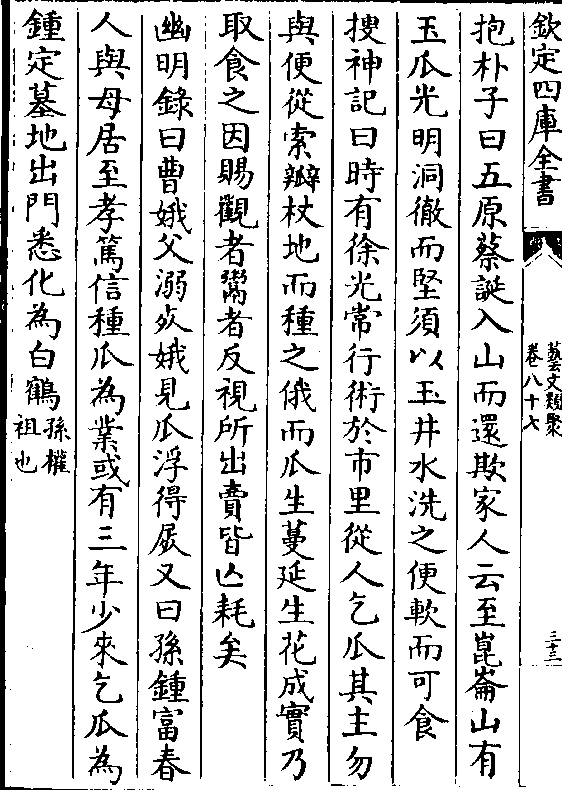 欽定四庫全書
藝文類聚
卷八十七
三十三
抱朴子曰五原蔡誕入山而還欺家人云至崑崙山有
玉瓜光明洞徹而堅須以玉井水洗之便軟而可食
搜神記曰時有徐光常行術於市里從人乞瓜其主勿
與便從索瓣杖地而種之俄而瓜生蔓延生花成實乃
取食之因賜觀者鬻者反視所出賣皆亾耗矣
幽明錄曰曹娥父溺死娥見瓜浮得屍又曰孫鍾富春
人與母居至孝篤信種瓜為業或有三年少來乞瓜為
鍾定墓地出門悉化為白鶴孫權
祖也